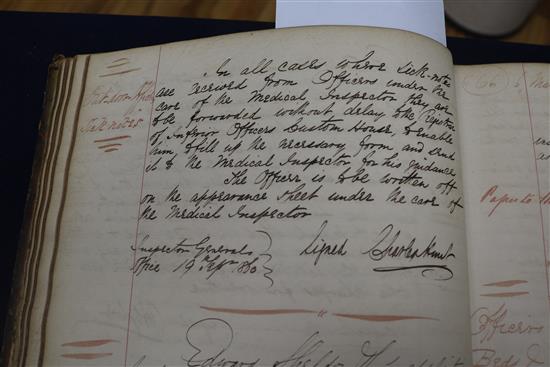 In all cases where Sick-notes
are received from Officers under the
care of the Medical Inspector they are
to be forwarded without delay to the register
of inferior Officers Custom House, to enable
him to fill up the necessary form and send
it to the Medical Inspector for his guidance
The Officer is to be written off
on the appearance sheet under the care of
the Medical Inspector
Sick notes
Inspector Generals
Office 19th Septr 1860
Signed
Officers
Beds